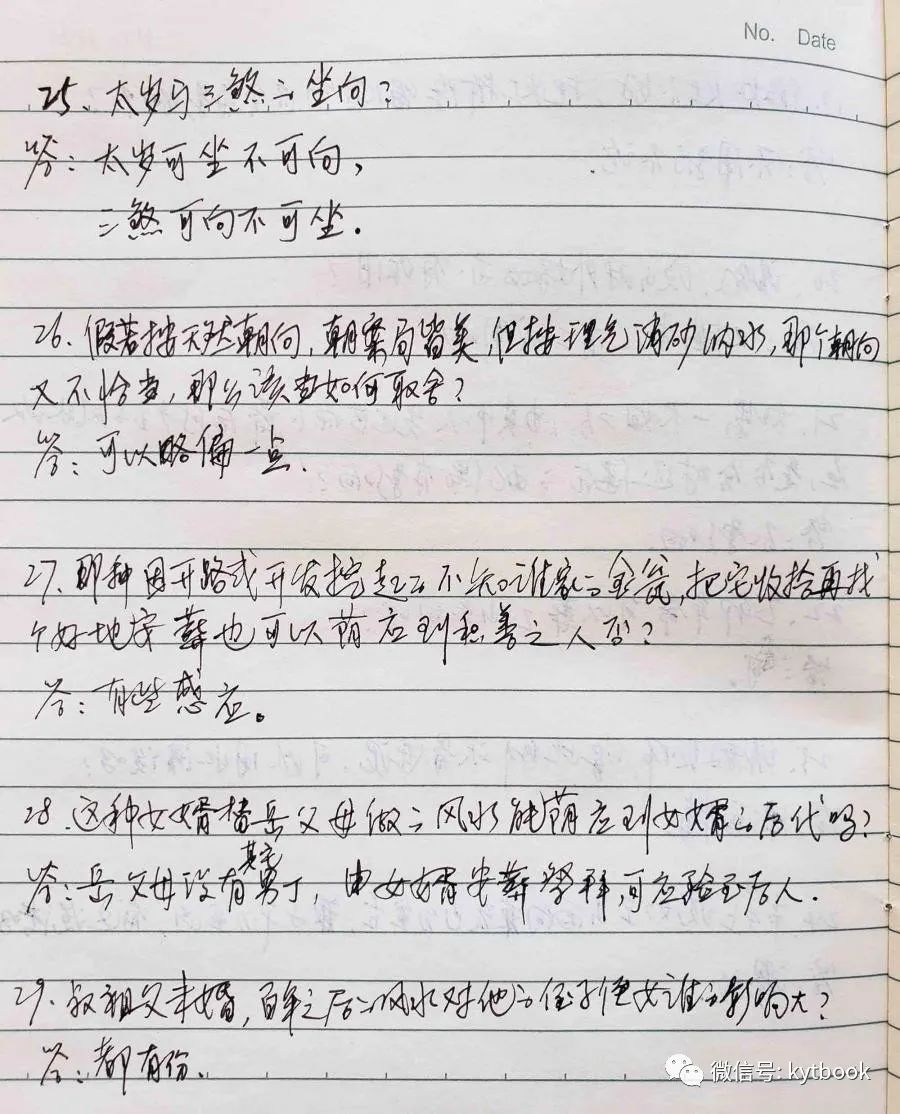 No. Date
25、太岁与三煞之坐向？
答：太岁可坐不可向，
三煞可向不可坐.
26、假若按天然朝向，朝案局皆美，但按理气消砂纳水，那个朝向
又不恰当，那么该当如何取舍？
答：可以略偏一点.
27、那种因开路或开发挖起之不知谁家之金瓮，把它收拾再找
个好地安葬也可以荫应到积善之人否？
答：有些感应。
28、这种女婿替岳父母做之风水能荫应到女婿之后代吗？
其它
答：岳父母没有男丁，由女婿安葬祭拜，可应验至后人.
29、叔祖父未婚，百年之后之风水对他之侄子侄女谁之影响大？
答：都有份.
微信号: kytbook